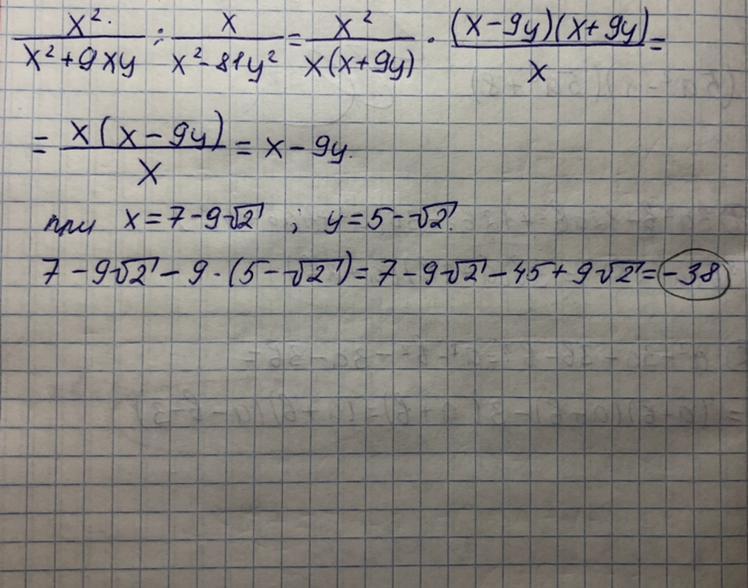 x²/(x²+9xy) : x/(x²-81y²) = x²/(x(x+9y)) · (x-9y)(x+9y)/x =
= x(x-9y)/x = x-9y.
при x=7-9√2 ; y=5-√2.
7-9√2-9·(5-√2)=7-9√2-45+9√2=-38